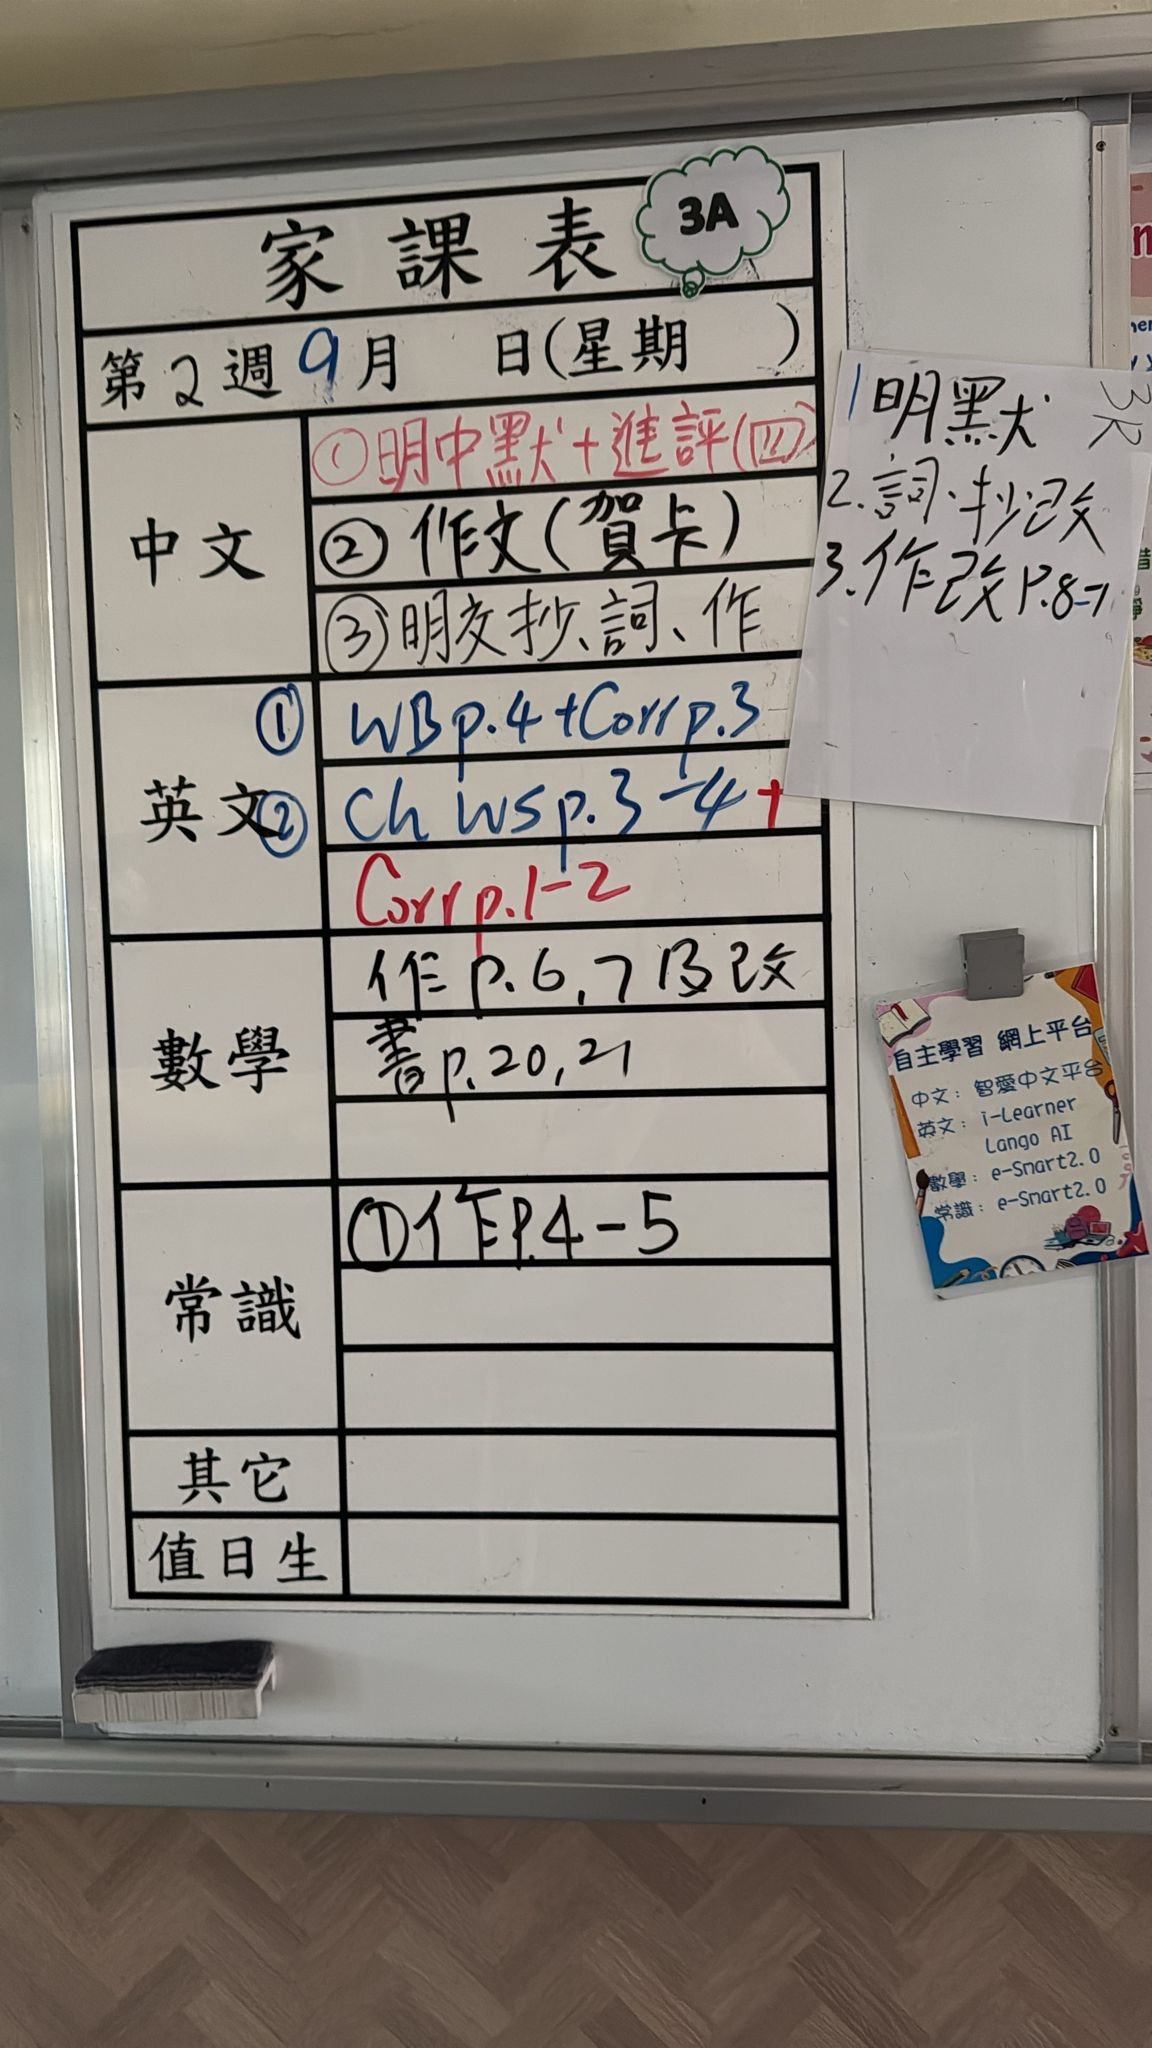 家課表
3A
第2週9月 日(星期 )
中文
①明中默+進評(四)
②作文(賀卡)
③明交抄、詞、作
英文
① WBp.4+Corrp.3
② Ch WSp.3-4+
Corrp.1-2
數學
作p.6,7及改
書p.20,21
常識
①作P.4-5
其它
值日生
1明默
2.詞、抄改
3.作改P.8-7
自主學習 網上平台
中文：智愛中文平台
英文：i-Learner
Lango AI
數學：e-Smart2.0
常識：e-Smart2.0